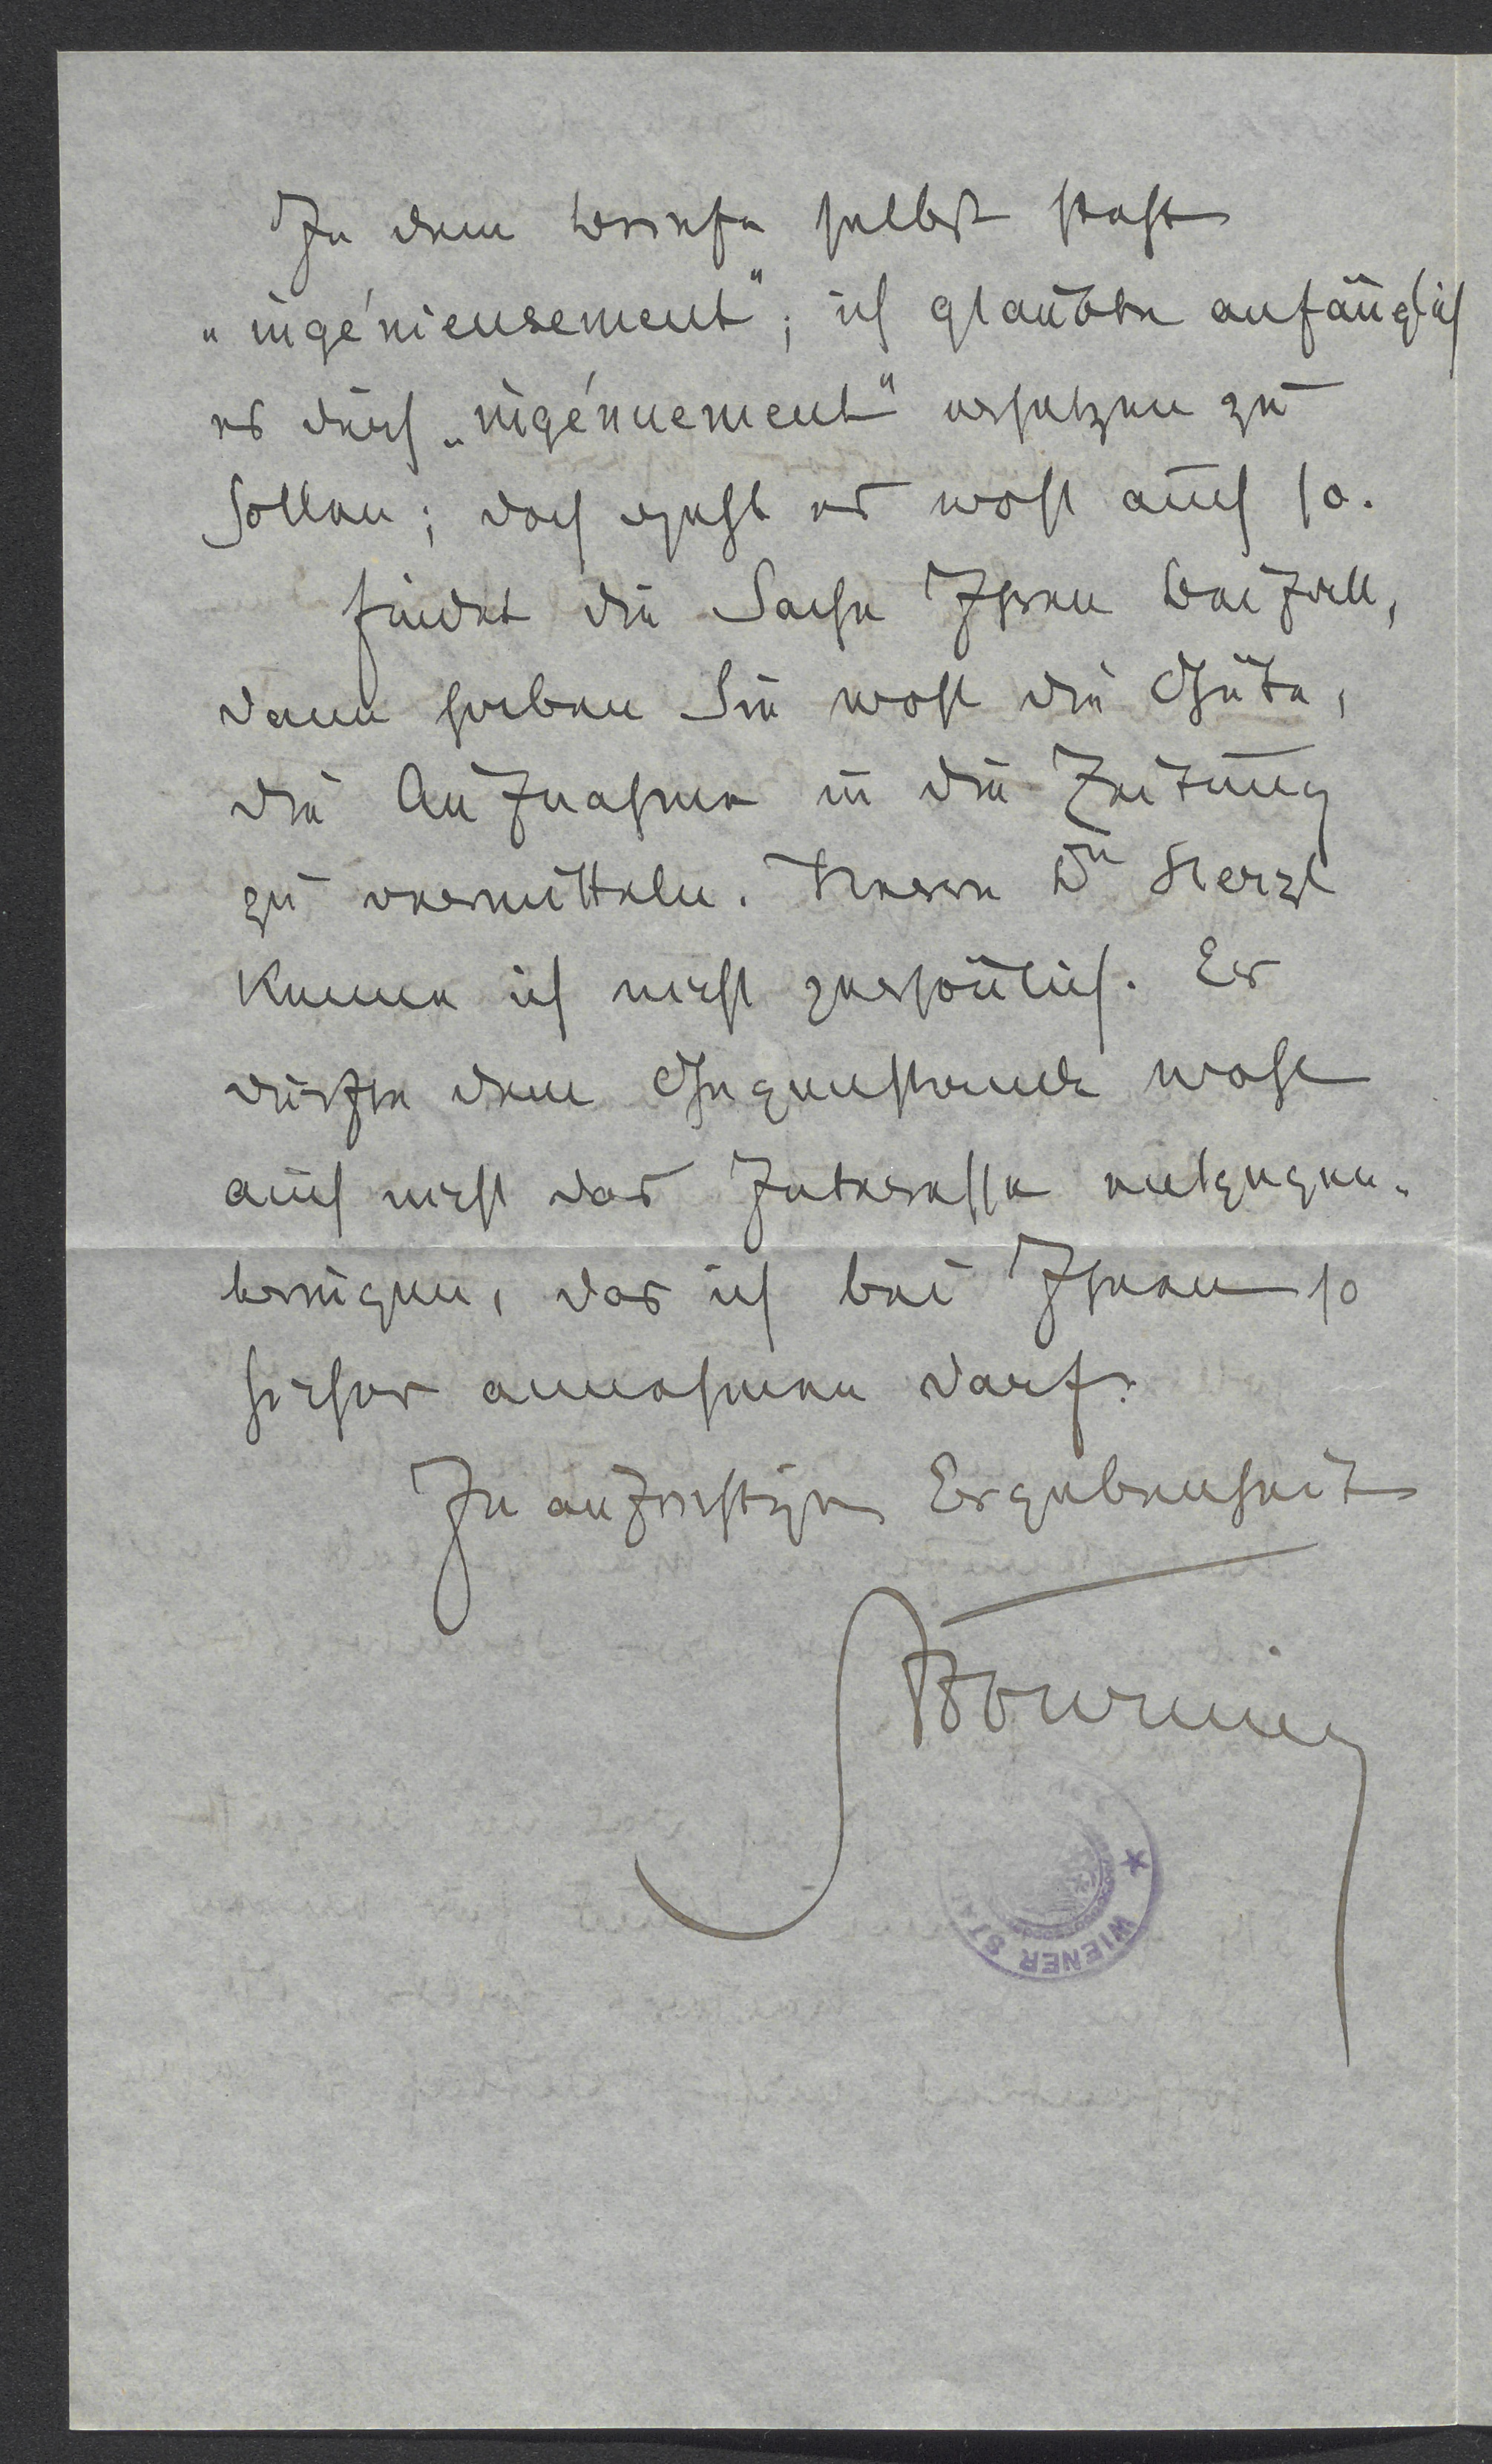 In dem Briefe selbst steht
„ingénieusement"; ich glaubte anfänglich
es durch „ingénuement" ersetzen zu
sollen; doch geht es wohl auch so.
Findet die Sache Ihren Beifall,
dann haben Sie wohl die Güte,
die Aufnahme in die Zeitung
zu vermitteln. Herrn Dr Herzl
kenne ich nicht persönlich. Er
dürfte dem Gegenstande wohl
auch nicht das Interesse entgegen-
bringen, das ich bei Ihnen so
sicher annehmen darf.
In aufrichtiger Ergebenheit
WIENER STA